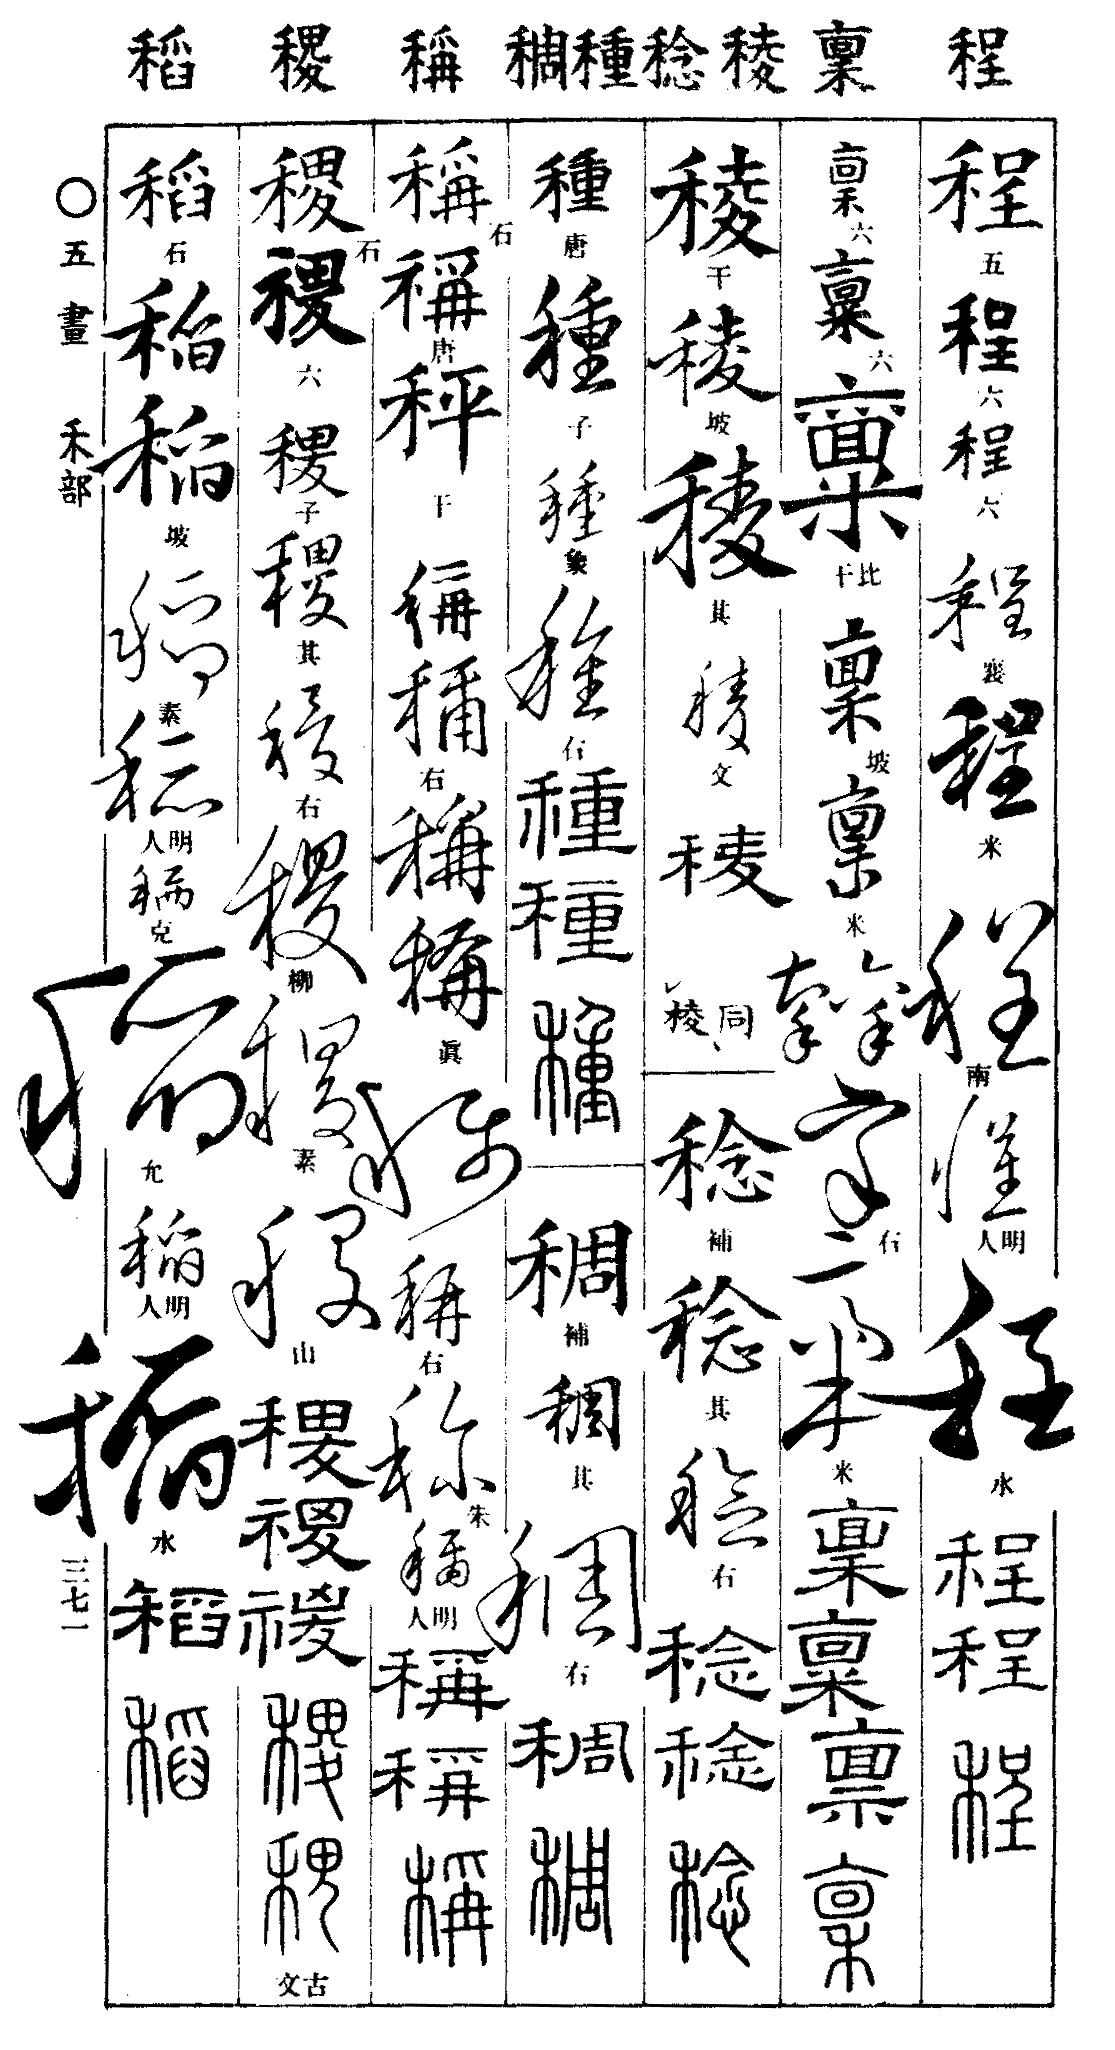 程 稟 稜 稔 種 稠 稱 稷 稻
程 五 程 六 程 六 程 襄 程 米 程 南 程 明人 程 水 程 程 程
稟 六 稟 六 稟 比干 稟 坡 稟 米 稟 稟 稟 石 稟 米 稟 稟 稟 稟
稜 干 稜 坡 稜 其 稜 文 稜 同 稜
稔 補 稔 其 稔 右 稔 稔 稔
種 唐 種 子 種 象 種 右 種 種 種
稠 補 稠 其 稠 右 稠 稠
稱 石 稱 唐 秤 干 稱 稱 右 稱 稱 眞 稱 稱 右 称 朱 稱 明人 稱 稱 稱
稷 石 稷 六 稷 子 稷 其 稷 右 稷 柳 稷 素 稷 山 稷 稷 稷 稷 稷 古文
稻 石 稻 稻 坡 稻 素 稻 明人 稻 克 稻 允 稻 明人 稻 水 稻 稻
〇五畫 禾部 三七一